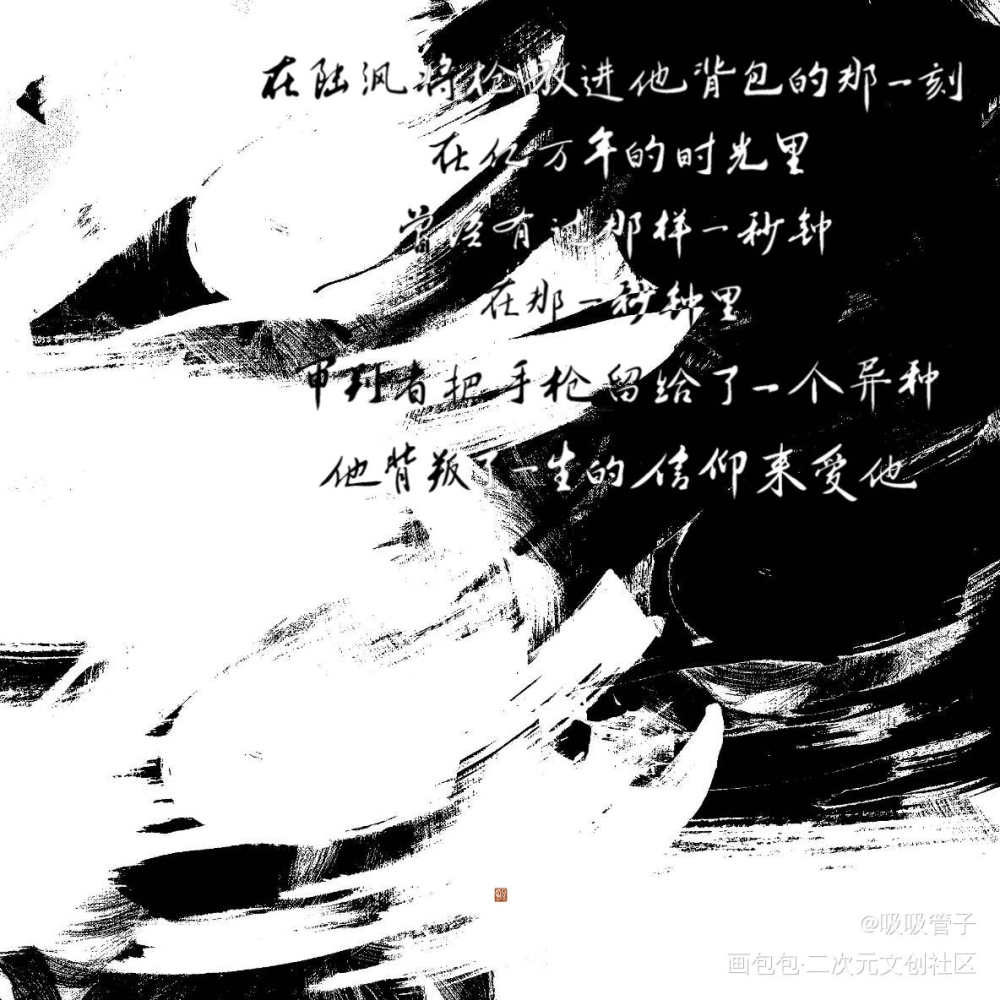 在陆沨将枪放进他背包的那一刻
在亿万年的时光里
曾经有过那样一秒钟
在那一秒钟里
审判者把手枪留给了一个异种
他背叛了一生的信仰来爱他
@吸吸管子
画包包·二次元文创社区